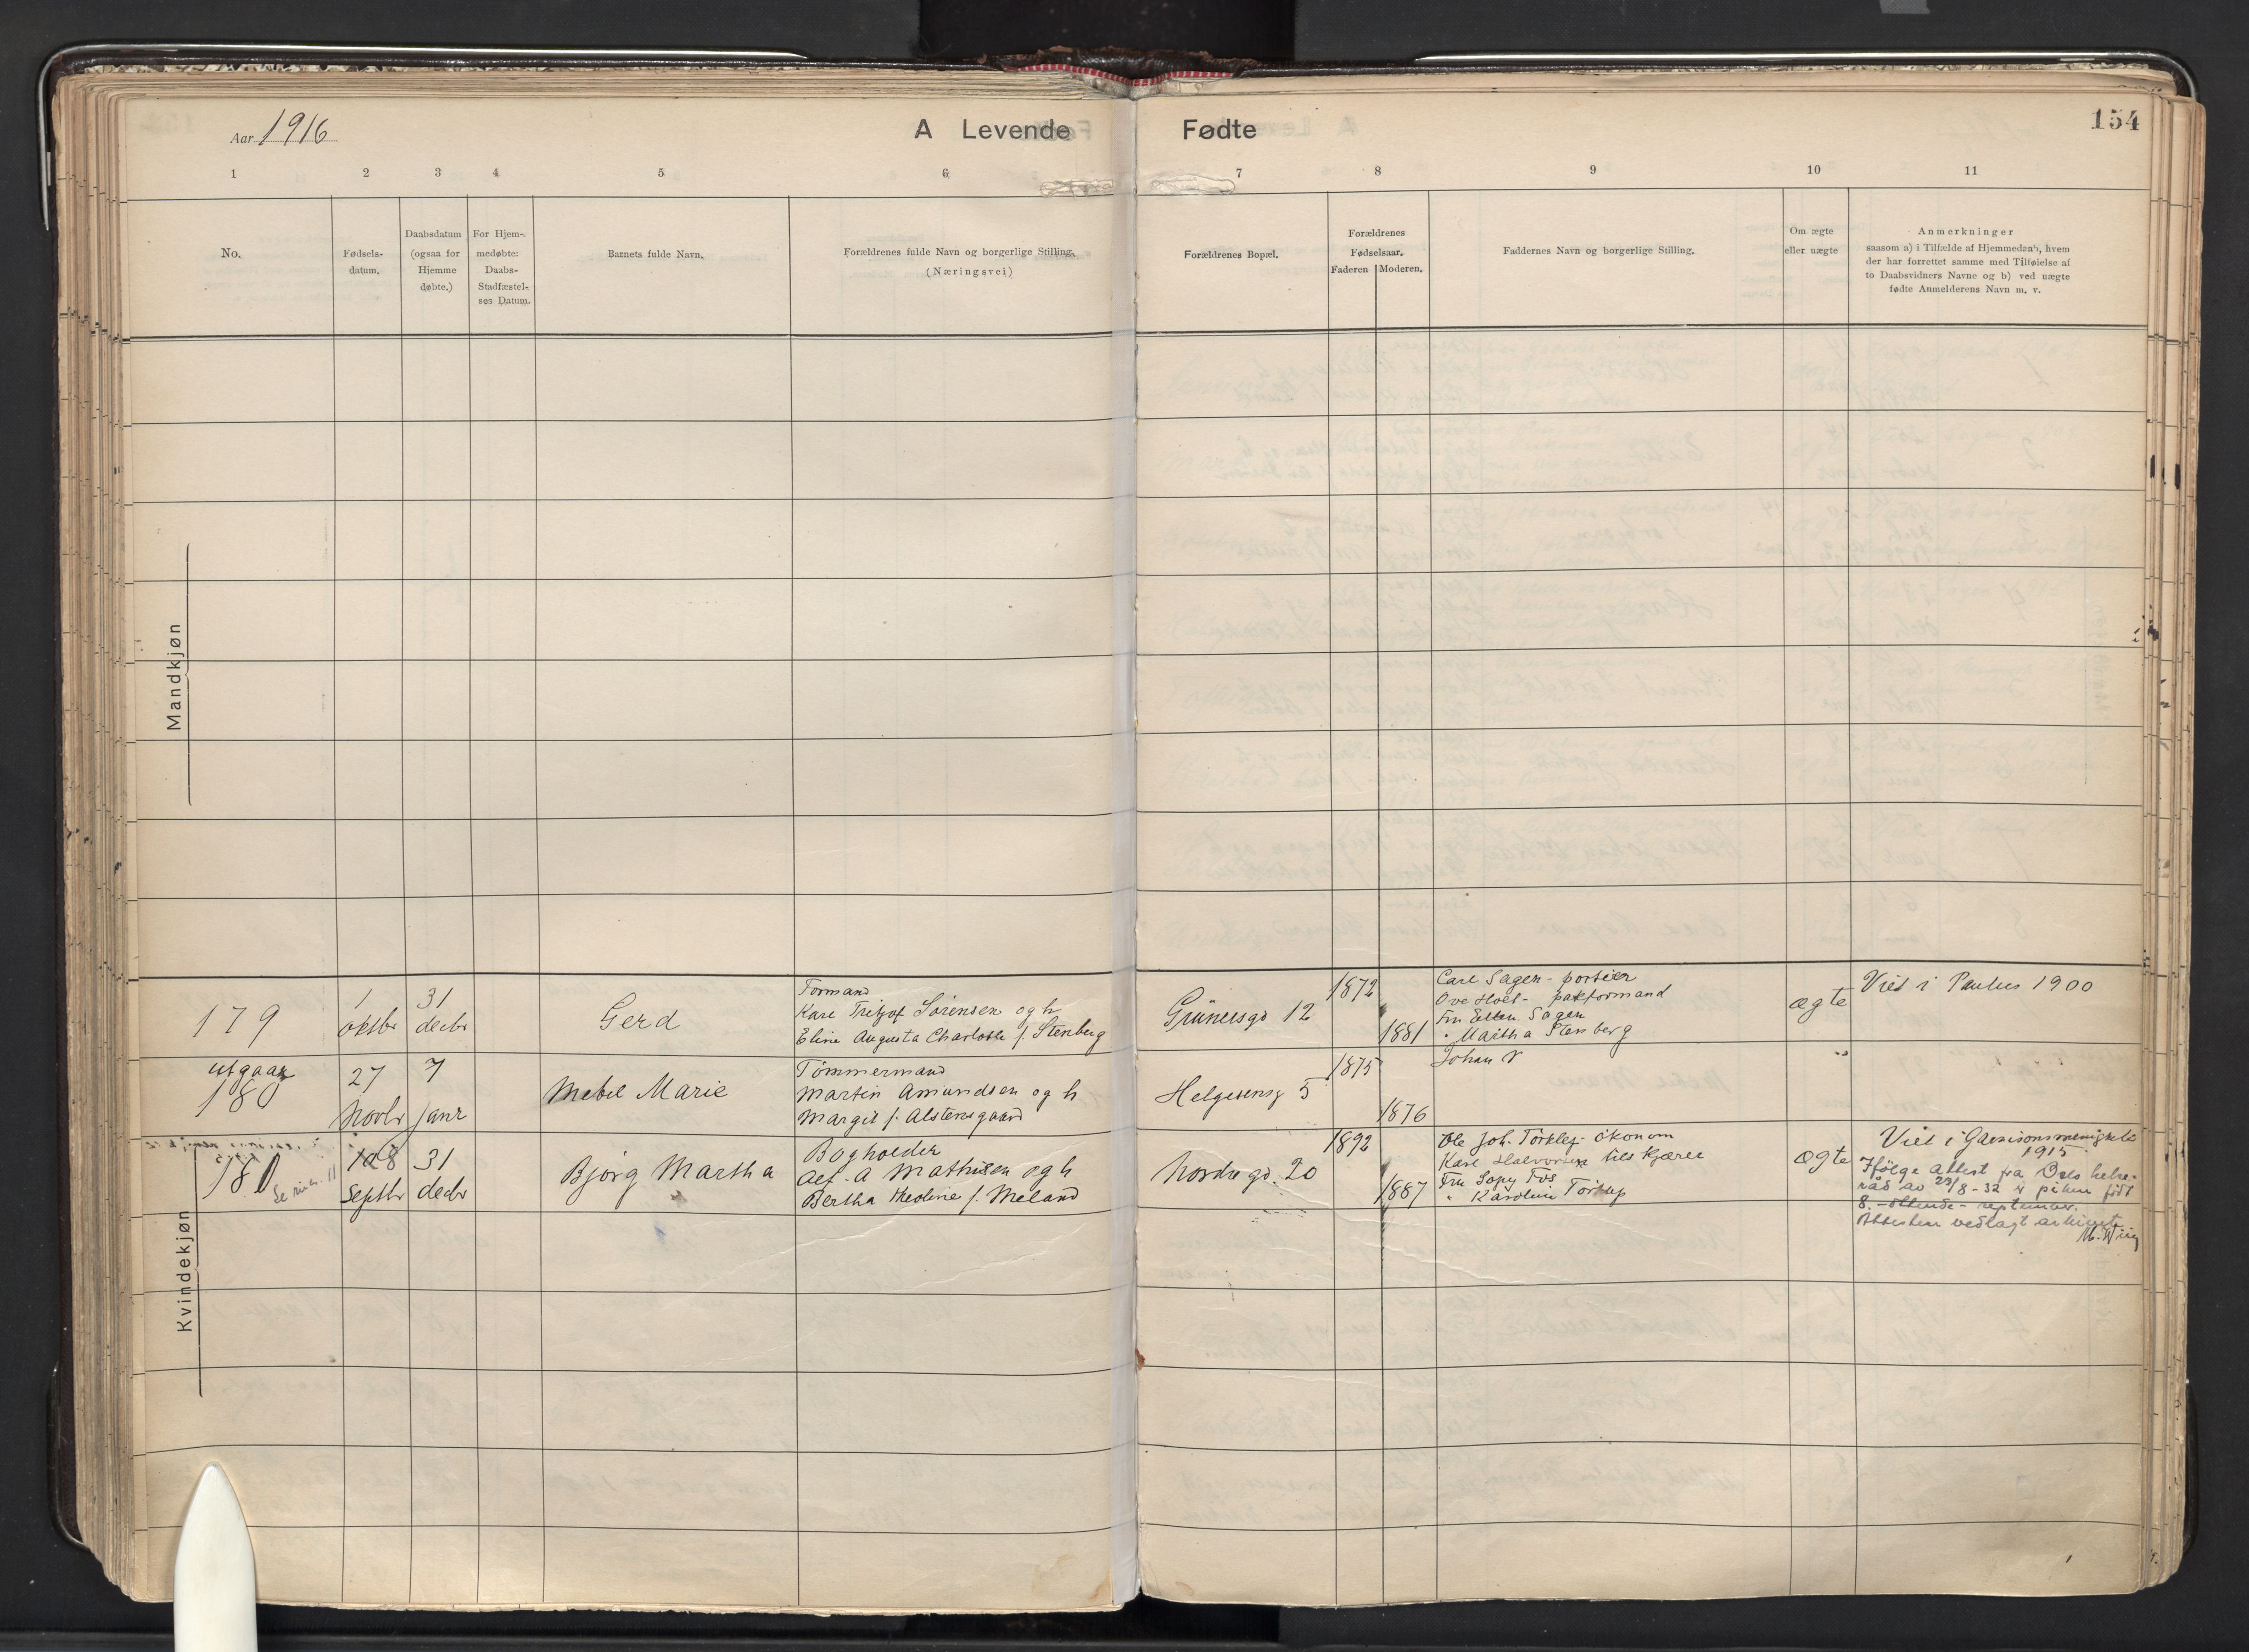 Aar 1916
A Levende
Fødte
154
1 2 3 4 5 6 7 8 9 10 11
No.
Fødsels-
datum.
Daabsdatum
(ogsaa for
Hjemme
døbte.)
For Hjem-
medøbte:
Daabs-
Stadfæstel-
ses Datum.
Barnets fulde Navn.
Forældrenes fulde Navn og borgerlige Stilling.
(Næringsvei)
Forældrenes Bopæl.
Forældrenes
Fødselsaar.
Faderen Moderen.
Faddernes Navn og borgerlige Stilling.
Om ægte
eller uægte
Anmerkninger
saasom a) i Tilfælde af Hjemmedaab, hvem
der har forrettet samme med Tilføielse af
to Daabsvidners Navne og b) ved uægte
fødte Anmelderens Navn m. v.
Mandkjøn
Kvindekjøn
179
1
oktbr
31
decbr
Gerd
Formand
Karl Fritjof Sørensen og h
Eline Augusta Charlotte f. Stenberg
Grünersgd 12
1872
1881
Carl Sagen - portier
Ove Holt - pakformand
Fru Ellen Sagen
" Martha Stenberg
ægte
Viet i Paulus 1900
utgaar
180
27
Novbr
7
janr
Mebel Marie
Tømmermand
Martin Amundsen og h
Margit f. Alstensgaard
Helgesensg 5
1875
1876
Johan
"
180
8
Septbr
31
decbr
Bjørg Martha
Bogholder
Alf. A Mathisen og h
Bertha Theoline f. Meland
Nordregd. 20
1892
1887
Ole Joh. Torklep - økonom
Karl Halvorsen tilskjærer
Fru Sopy Fos
" Karoline Torkep
ægte
Viet i Garnisonsmenighet
1915
Ifølge attest fra Oslo helse-
råd av 29/8-32 er piken født
8. - ottende - september.
Attesten vedlagt arkivet.